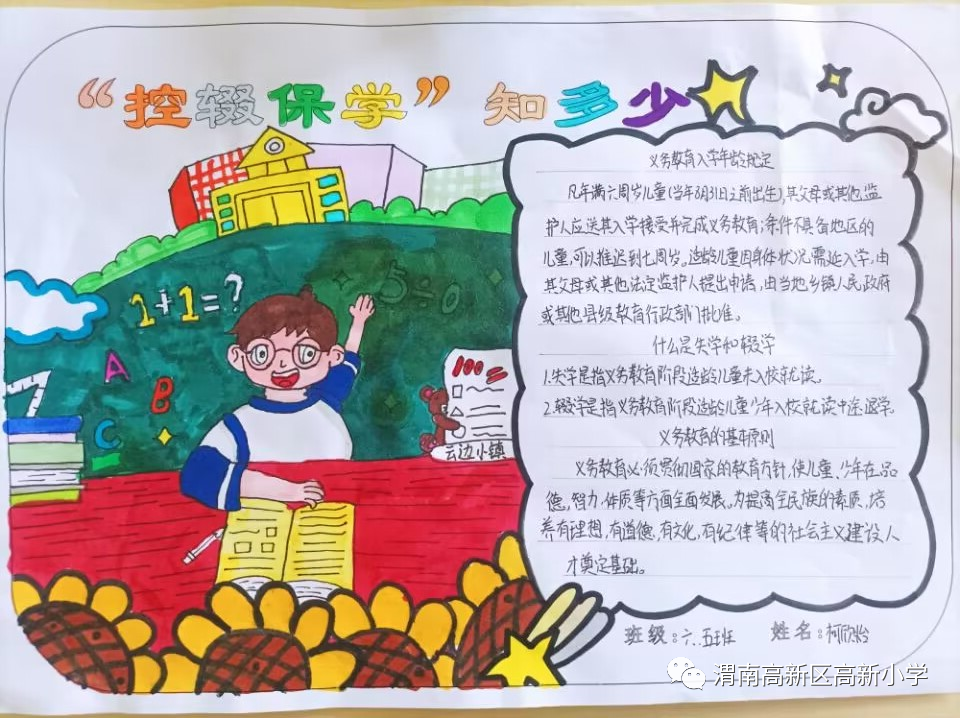 “控辍保学” 知多少
义务教育入学年龄规定
凡年满六周岁儿童(当年8月31日之前出生),其父母或其他监
护人应送其入学接受并完成义务教育;条件不具备地区的
儿童,可以推迟到七周岁。适龄儿童因身体状况需延入学,由
其父母或其他法定监护人提出申请,由当地乡镇人民政府
或其他县级教育行政部门批准。
什么是失学和辍学
1.失学是指义务教育阶段适龄儿童未入校就读。
2.辍学是指义务教育阶段适龄儿童少年入校就读中途退学.
义务教育的基本原则
义务教育必须贯彻国家的教育方针,使儿童、少年在品
德,智力,体质等方面全面发展。为提高全民族的素质,培
养有理想,有道德,有文化,有纪律等的社会主义建设人
才奠定基础。
班级:六.五班 姓名:柯欣怡
1+1=?
5÷0
A
B
C
100
云边小镇
渭南高新区高新小学